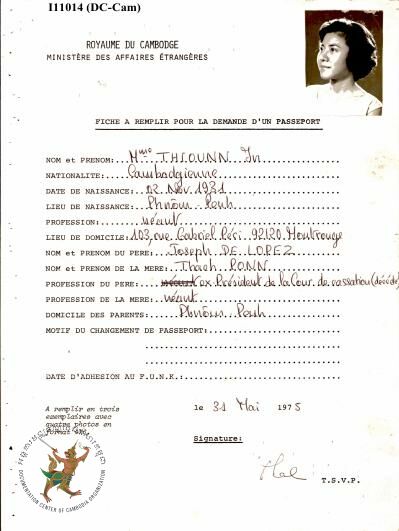 I11014 (DC-Cam)
ROYAUME DU CAMBODGE
MINISTÈRE DES AFFAIRES ÉTRANGÈRES
FICHE A REMPLIR POUR LA DEMANDE D'UN PASSEPORT
NOM et PRENOM:...Mme THIOUNN In
NATIONALITE:...Cambodgienne
DATE DE NAISSANCE:...02 Nov 1931
LIEU DE NAISSANCE:...Phnôm Penh
PROFESSION:...néant
LIEU DE DOMICILE:103, rue Gabriel Péri 92120 Montrouge
NOM et PRENOM DU PERE:...Joseph DE LOPEZ
NOM et PRENOM DE LA MERE:...Thach PONN
PROFESSION DU PÈRE:...néant ex. Président de la Cour de cassation (décédé)
PROFESSION DE LA MERE:néant
DOMICILE DES PARENTS:...Phnôm Penh
MOTIF DU CHANGEMENT DE PASSEPORT:
DATE D'ADHESION AU F.U.N.K.:
A remplir en trois
exemplaires avec
quatre photos en
format 4X4.
le 31 Mai 1975
Signature:
T.S.V.P.
DOCUMENTATION CENTER OF CAMBODIA ORGANIZATION